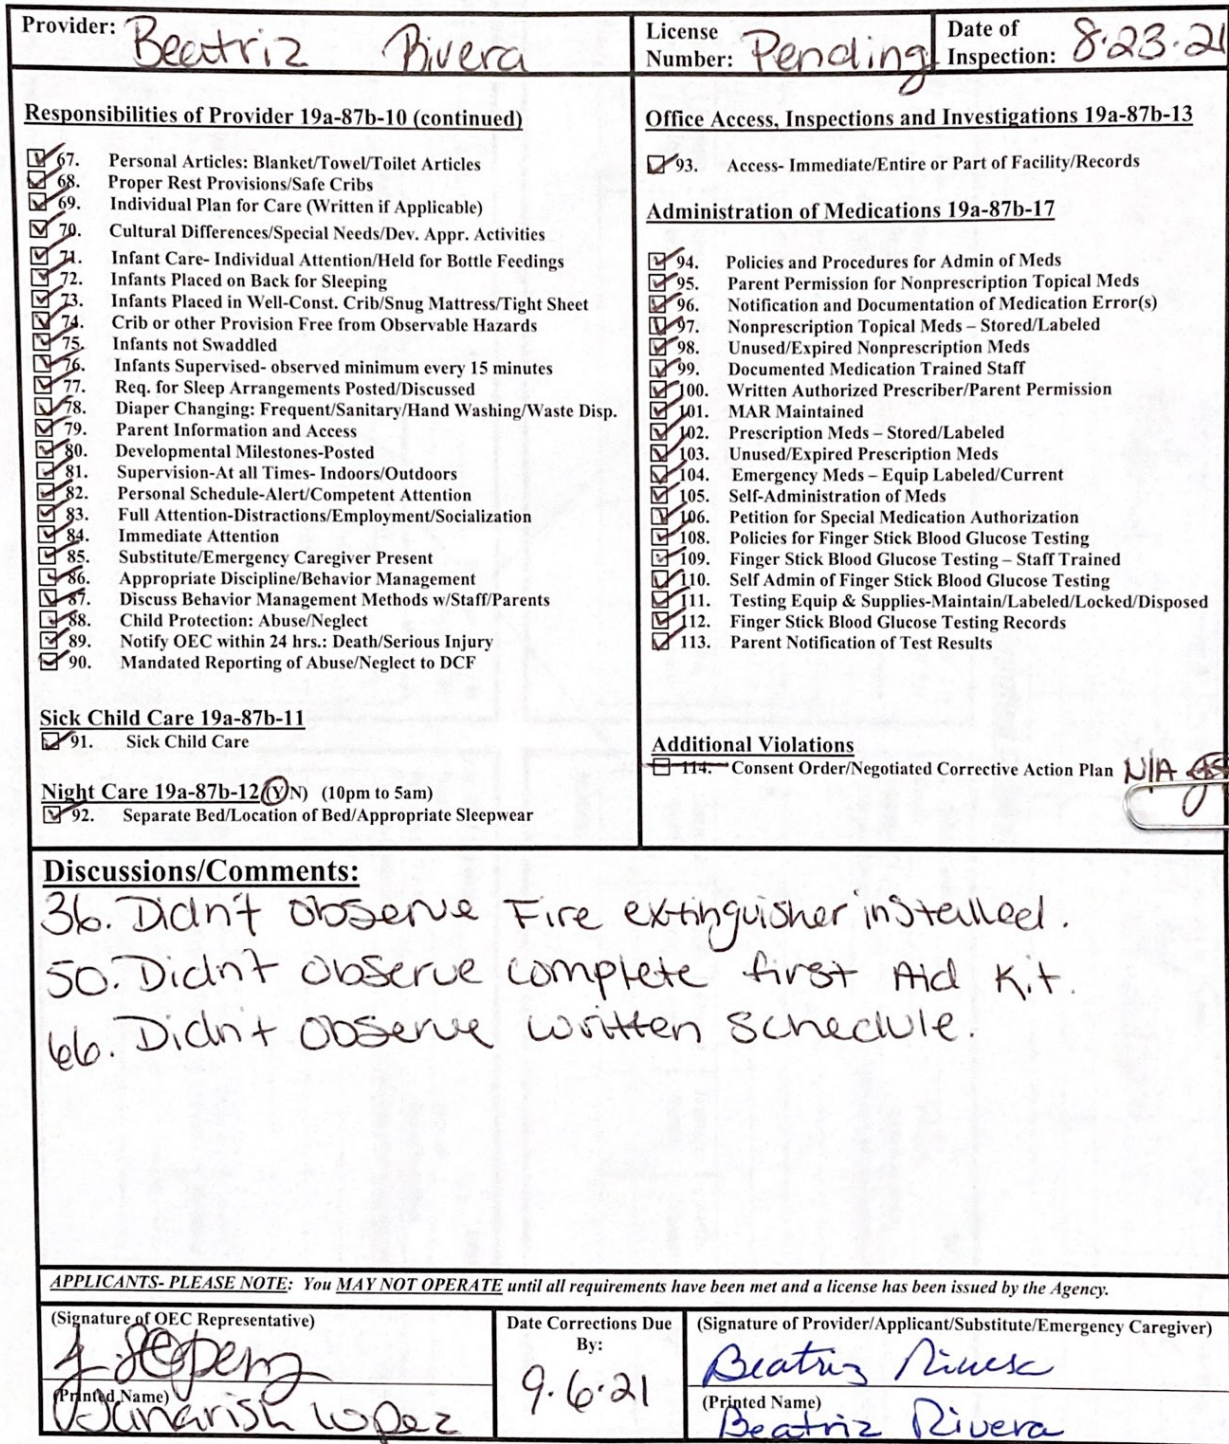 Provider: Beatriz Rivera
License Number: Pending
Date of Inspection: 8.23.21
Responsibilities of Provider 19a-87b-10 (continued)
67. Personal Articles: Blanket/Towel/Toilet Articles
68. Proper Rest Provisions/Safe Cribs
69. Individual Plan for Care (Written if Applicable)
70. Cultural Differences/Special Needs/Dev. Appr. Activities
71. Infant Care- Individual Attention/Held for Bottle Feedings
72. Infants Placed on Back for Sleeping
73. Infants Placed in Well-Const. Crib/Snug Mattress/Tight Sheet
74. Crib or other Provision Free from Observable Hazards
75. Infants not Swaddled
76. Infants Supervised- observed minimum every 15 minutes
77. Req. for Sleep Arrangements Posted/Discussed
78. Diaper Changing: Frequent/Sanitary/Hand Washing/Waste Disp.
79. Parent Information and Access
80. Developmental Milestones-Posted
81. Supervision-At all Times- Indoors/Outdoors
82. Personal Schedule-Alert/Competent Attention
83. Full Attention-Distractions/Employment/Socialization
84. Immediate Attention
85. Substitute/Emergency Caregiver Present
86. Appropriate Discipline/Behavior Management
87. Discuss Behavior Management Methods w/Staff/Parents
88. Child Protection: Abuse/Neglect
89. Notify OEC within 24 hrs.: Death/Serious Injury
90. Mandated Reporting of Abuse/Neglect to DCF
Sick Child Care 19a-87b-11
91. Sick Child Care
Night Care 19a-87b-12 (Y/N) (10pm to 5am)
92. Separate Bed/Location of Bed/Appropriate Sleepwear
Office Access, Inspections and Investigations 19a-87b-13
93. Access- Immediate/Entire or Part of Facility/Records
Administration of Medications 19a-87b-17
94. Policies and Procedures for Admin of Meds
95. Parent Permission for Nonprescription Topical Meds
96. Notification and Documentation of Medication Error(s)
97. Nonprescription Topical Meds – Stored/Labeled
98. Unused/Expired Nonprescription Meds
99. Documented Medication Trained Staff
100. Written Authorized Prescriber/Parent Permission
101. MAR Maintained
102. Prescription Meds – Stored/Labeled
103. Unused/Expired Prescription Meds
104. Emergency Meds – Equip Labeled/Current
105. Self-Administration of Meds
106. Petition for Special Medication Authorization
108. Policies for Finger Stick Blood Glucose Testing
109. Finger Stick Blood Glucose Testing – Staff Trained
110. Self Admin of Finger Stick Blood Glucose Testing
111. Testing Equip & Supplies-Maintain/Labeled/Locked/Disposed
112. Finger Stick Blood Glucose Testing Records
113. Parent Notification of Test Results
Additional Violations
114. Consent Order/Negotiated Corrective Action Plan N/A
Discussions/Comments:
36. Didn't observe Fire extinguisher installed.
50. Didn't observe complete first Aid Kit.
66. Didn't observe written schedule.
APPLICANTS- PLEASE NOTE: You MAY NOT OPERATE until all requirements have been met and a license has been issued by the Agency.
(Signature of OEC Representative)
(Printed Name)
Lopez
Date Corrections Due By:
9.6.21
(Signature of Provider/Applicant/Substitute/Emergency Caregiver)
Beatriz Rivera
(Printed Name)
Beatriz Rivera